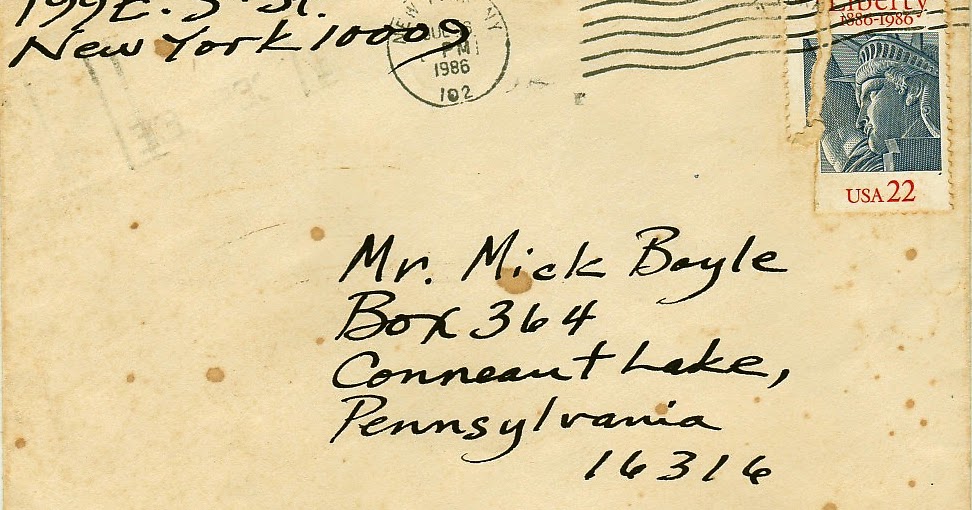 199 E. 3rd St.
New York 10009
NEW YORK, NY
PM
1986
102
Liberty
1886-1986
USA 22
Mr. Mick Boyle
Box 364
Conneaut Lake,
Pennsylvania
16316